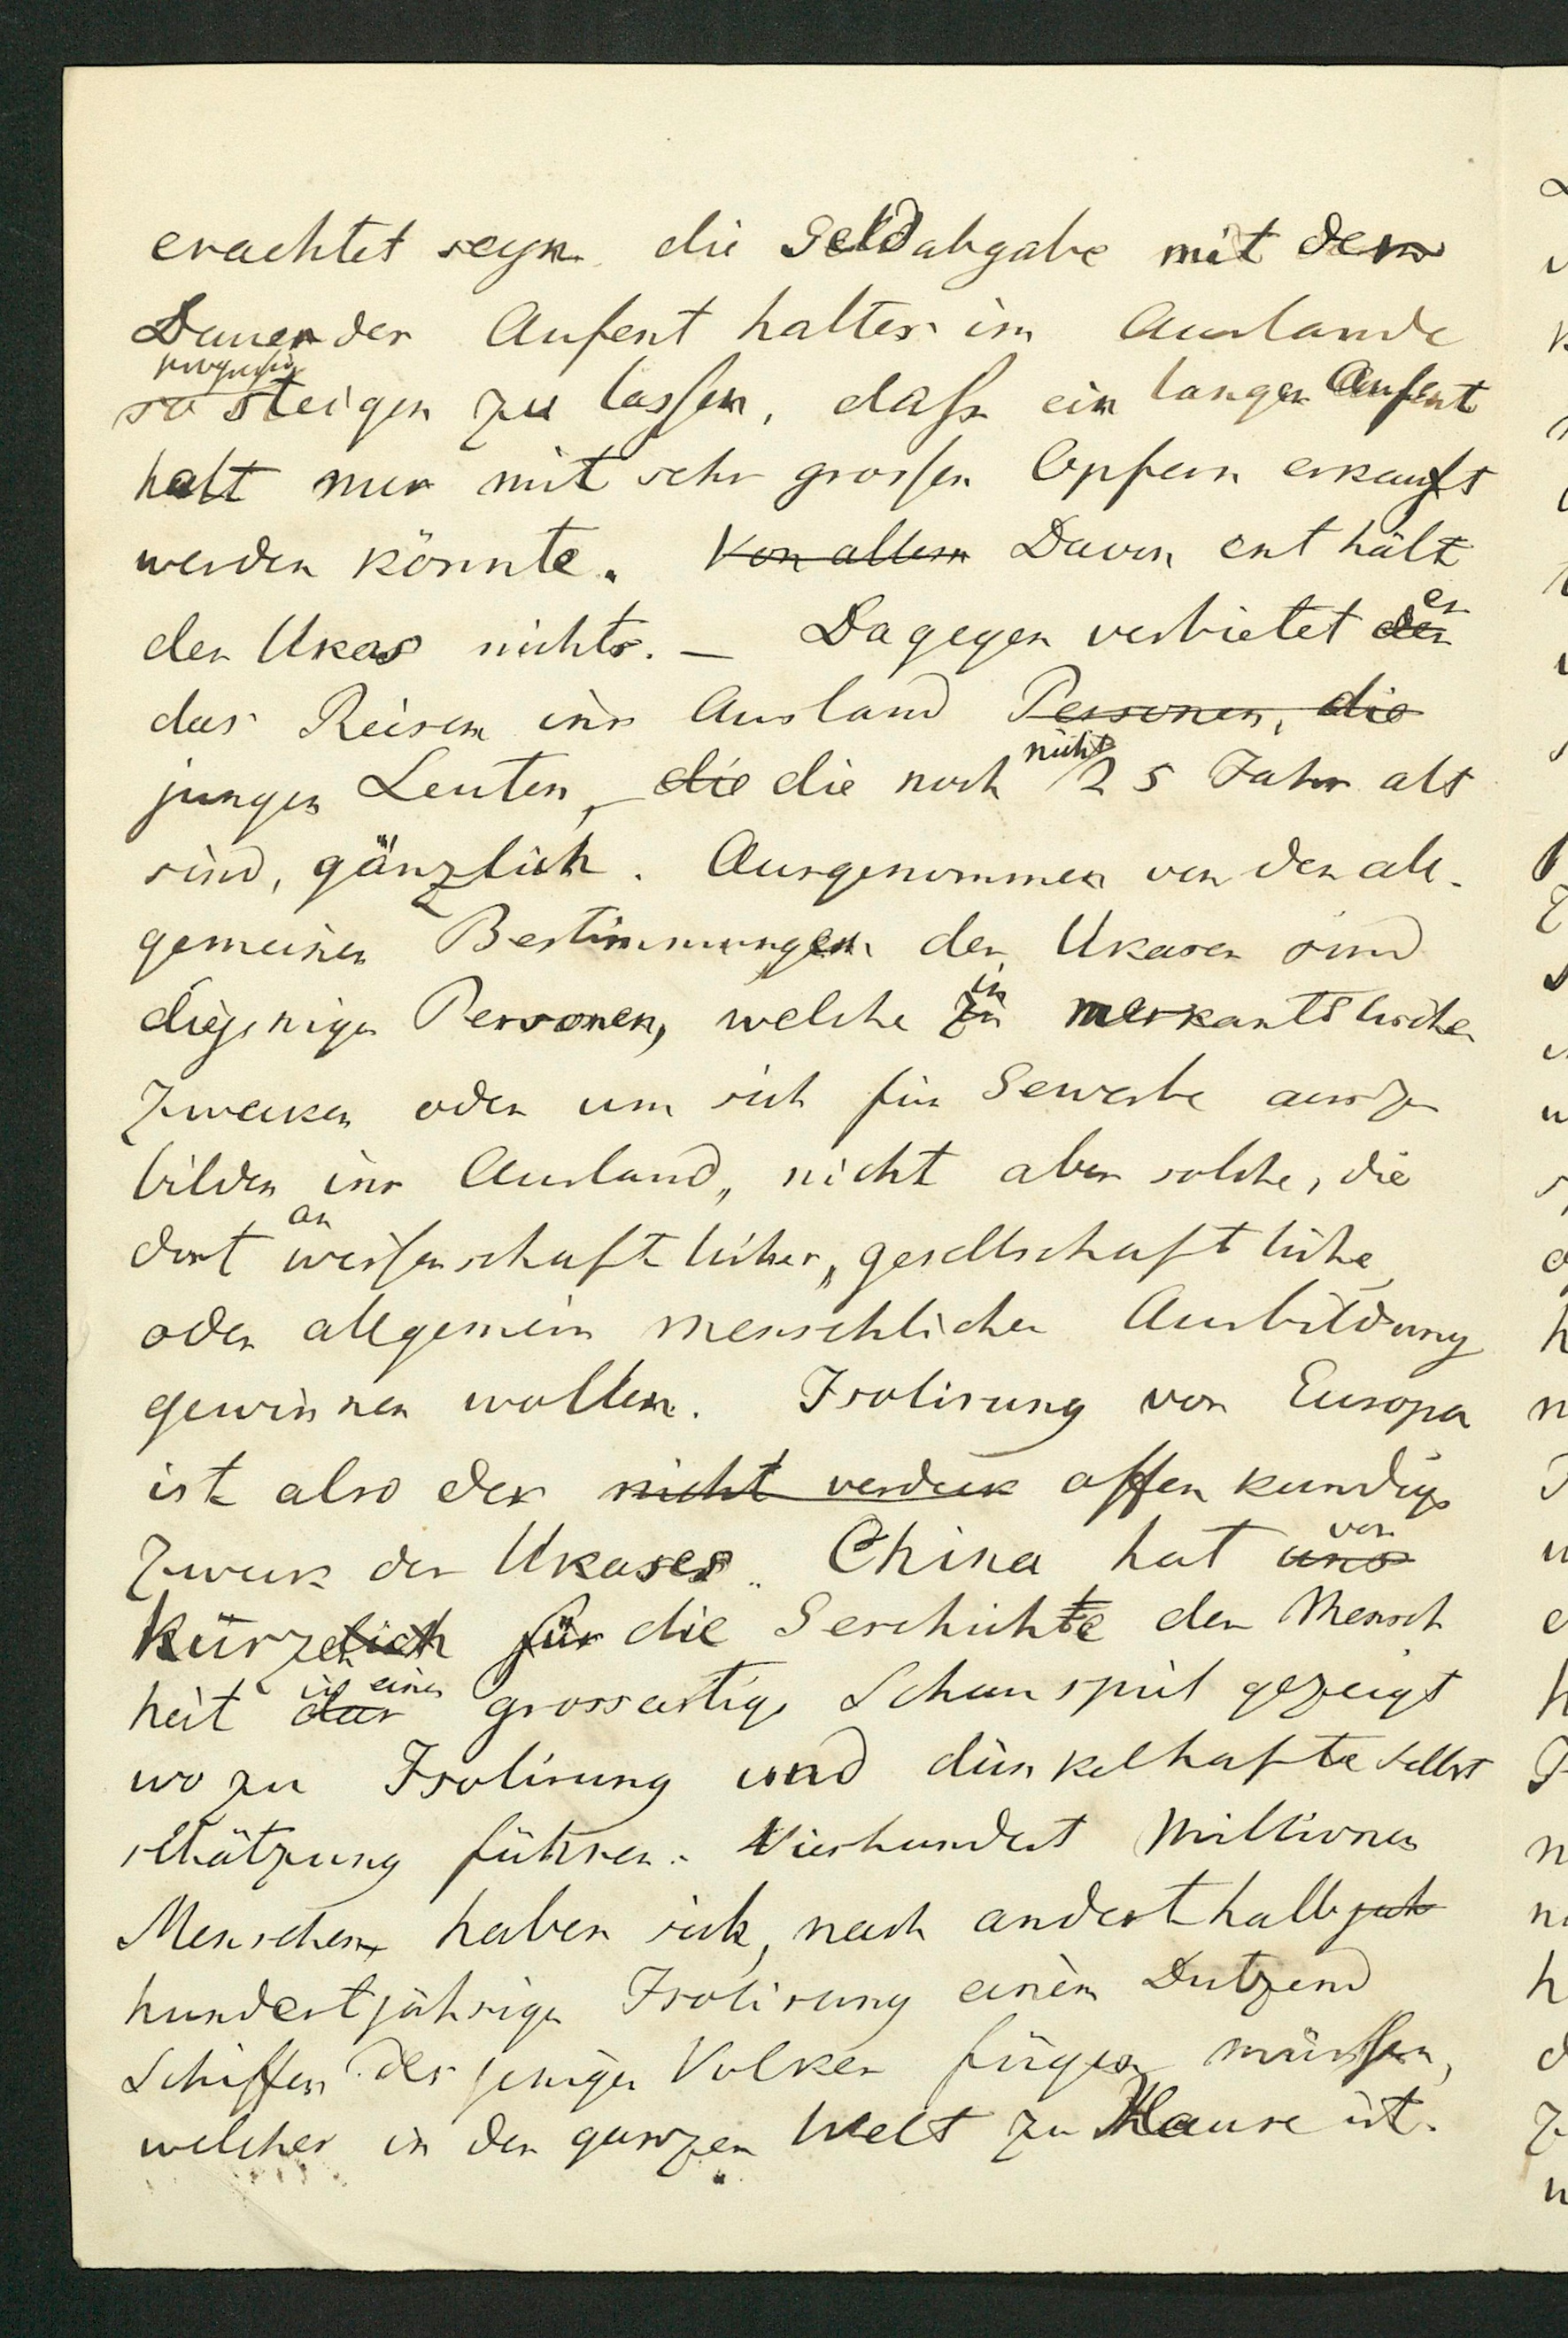 erachtet seyn die Geldabgabe mit der
Dauer des Aufenthaltes im Auslande
progressiv
so steigen zu lassen, dass ein langer Aufent
halt nur mit sehr grossen Opfern erkauft
werden könnte. Von allem Davon enthält
der Ukas nichts. — Dagegen verbietet der er
das Reisen ins Ausland Personen, die
jungen Leuten, die die noch nicht 25 Jahr alt
sind, gänzlich. Ausgenommen von den all-
gemeinen Bestimmungen des Ukases sind
diejenigen Personen, welche zu in merkantilischen
Zwecken oder um sich für Gewerbe auszu
bilden ins Ausland, nicht aber solche, die
dort an wissenschaftlicher, gesellschaftlicher
oder allgemein menschlicher Ausbildung
gewinnen wollen. Isolirung von Europa
ist also der nicht verdeck offenkundige
Zweck des Ukases. China hat uns vor
kürzelich em für die Geschichte der Mensch
heit das in eines grossartige Schauspiel gezeigt
wozu Isolirung und dünkelhafte Selbst
schätzung führen. Vierhundert Millionen
Menschen haben sich, nach anderthalb jah
hundertjähriger Isolirung einem Dutzend
Schiffen desjenigen Volkes fügen müssen,
welches in der ganzen Welt zu Hause ist.